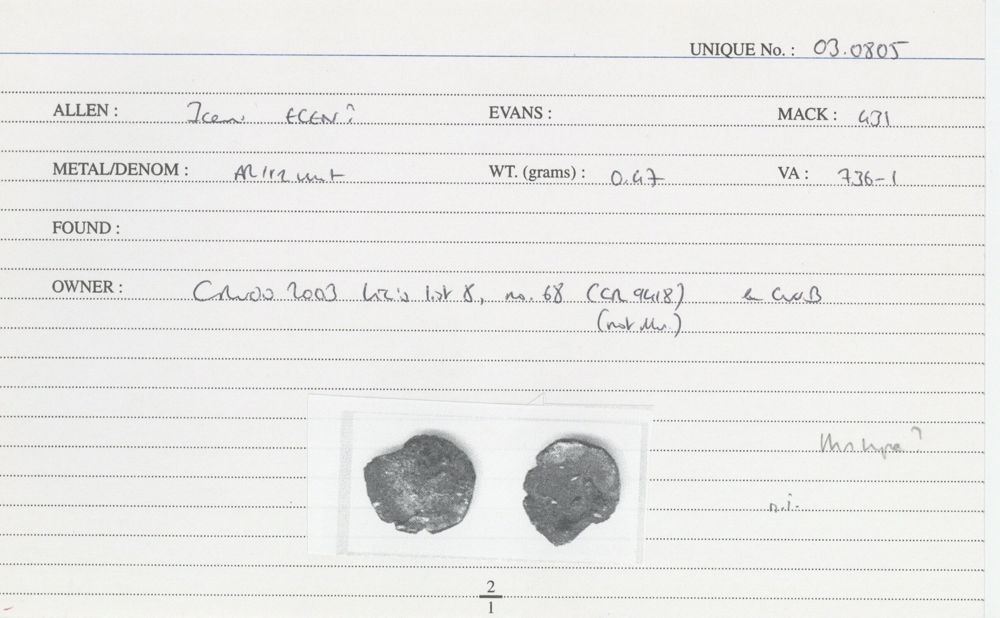 UNIQUE No. : 03.0805
ALLEN : Iceni ECEN? EVANS : MACK : 431
METAL/DENOM : AR unit WT. (grams) : 0.47 VA : 736-1
FOUND :
OWNER : 2003 list 8, no. 68 (CR 9418)
(not )
this type?
n.i.
2
1